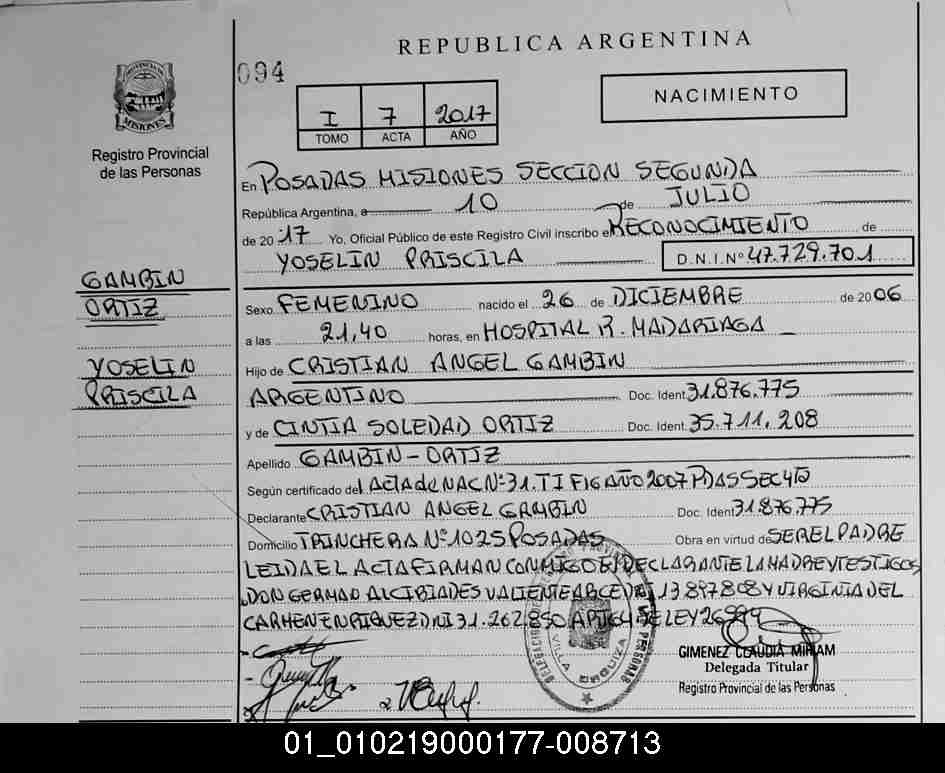 REPUBLICA ARGENTINA
094
PROVINCIA DE
MISIONES
Registro Provincial
de las Personas
I 7 2017
TOMO ACTA AÑO
NACIMIENTO
En POSADAS MISIONES SECCION SEGUNDA
República Argentina, a 10 de JULIO
de 20 17 Yo, Oficial Público de este Registro Civil inscribo el RECONOCIMIENTO de
YOSELIN PRISCILA D.N.I.Nº 47.729.701
GAMBIN
ORTIZ
YOSELIN
PRISCILA
Sexo FEMENINO nacido el 26 de DICIEMBRE de 2006
a las 21,40 horas, en HOSPITAL R. MADARIAGA
Hijo de CRISTIAN ANGEL GAMBIN
ARGENTINO Doc. Ident 31.876.775
y de CINTIA SOLEDAD ORTIZ Doc. Ident. 35.711.208
Apellido GAMBIN-ORTIZ
Según certificado del ACTA de NAC Nº 31. TI F16 AÑO 2007 PDAS SEC 4ta
Declarante CRISTIAN ANGEL GAMBIN Doc. Ident 31.876.775
Domicilio TRINCHERA Nº 1025 POSADAS Obra en virtud de SER EL PADRE
LEIDA EL ACTA FIRMAN CONMIGO EL DECLARANTE LA MADRE Y TESTIGOS
DON GERMAN ALCIBIADES VALIENTE ARCE DNI 13897808 Y VIRGINIA DEL
CARMEN ENRIQUEZ DNI 31.262.850 LEY 26994
VILLA URQUIZA
GIMENEZ CLAUDIA MIRIAM
Delegada Titular
Registro Provincial de las Personas
01_010219000177-008713